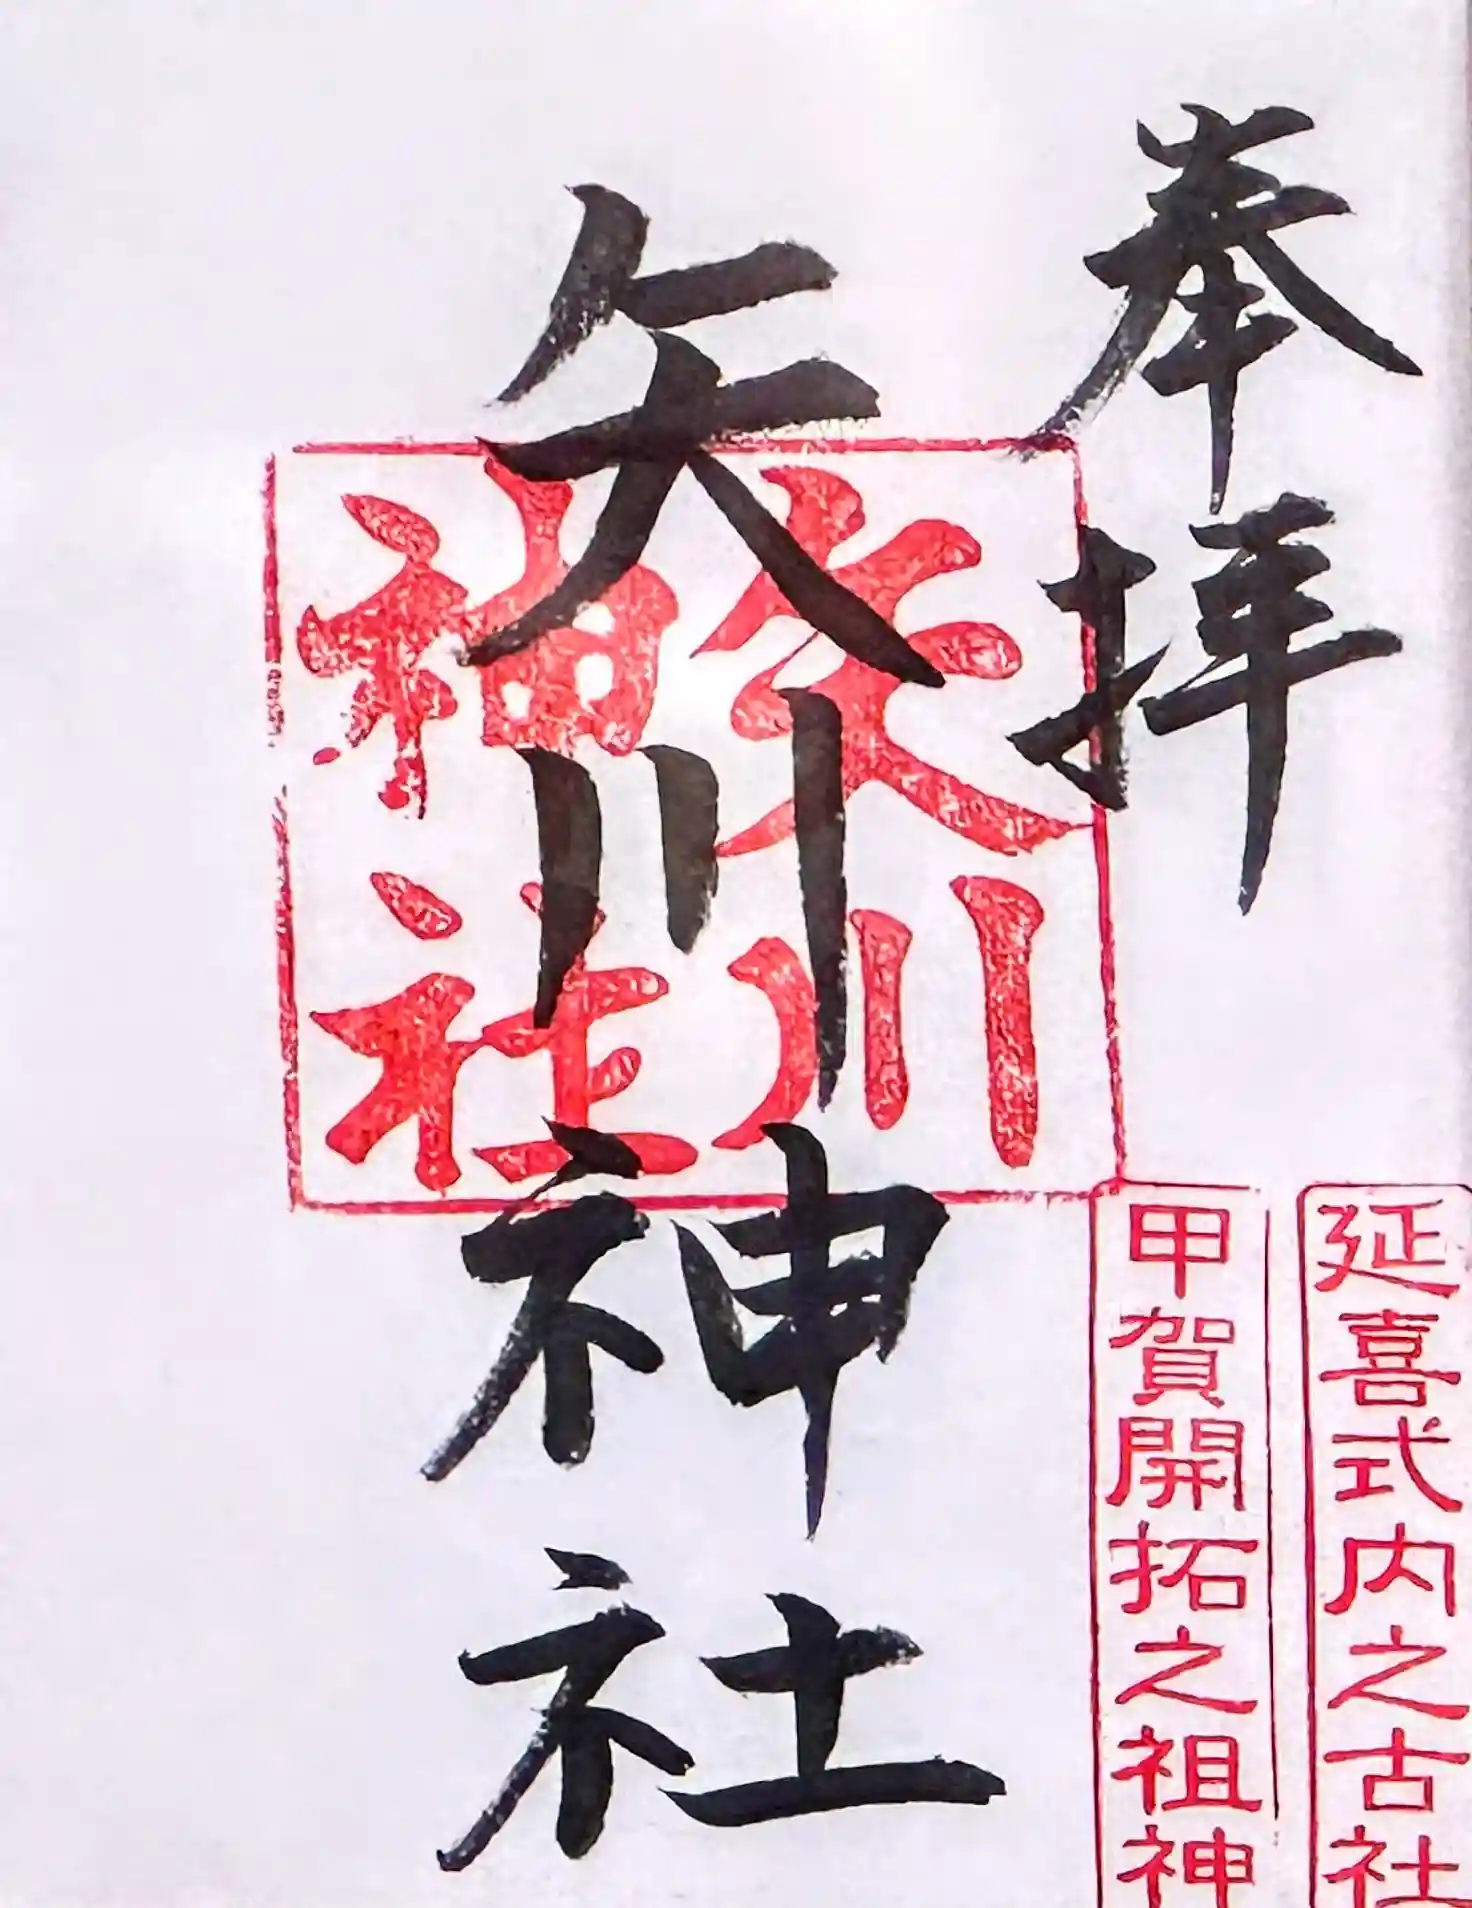 奉拝
延喜式内之古社
甲賀開拓之祖神
矢川神社
矢川
神社